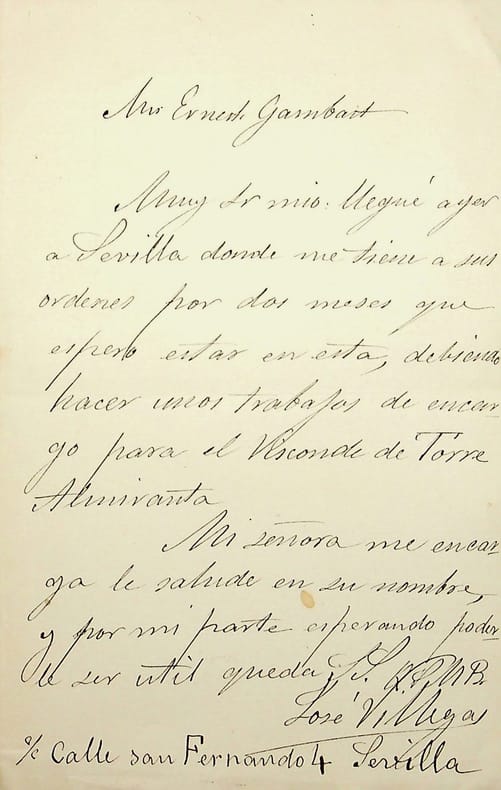 Mr Ernest Gambart
Muy Sr mio: llegué ayer
a Sevilla donde me tiene a sus
ordenes por dos meses que
espero estar en esta, debiendo
hacer unos trabajos de encar-
go para el Visconde de Torre
Almiranta
Mi señora me encar-
ga le salude en su nombre,
y por mi parte esperando poder-
le ser util queda S. S.
José Villegas
Calle san Fernando 4 Sevilla